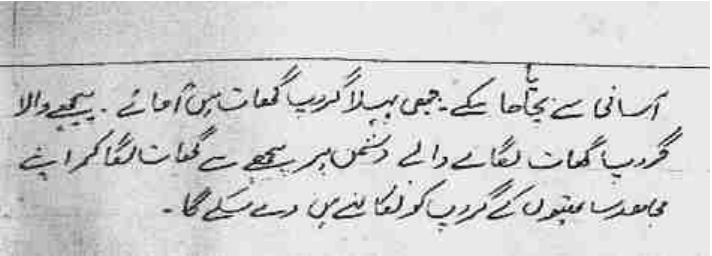 آسانی سے بچایا جا سکے۔ جبھی پہلا گروپ گھات میں آ جائے۔ پیچھے والا
گروپ گھات لگانے والے دشمن پر پیچھے سے گھات لگا کر اپنے
مجاہد ساتھیوں کے گروپ کو نکالنے میں دے سکے گا۔